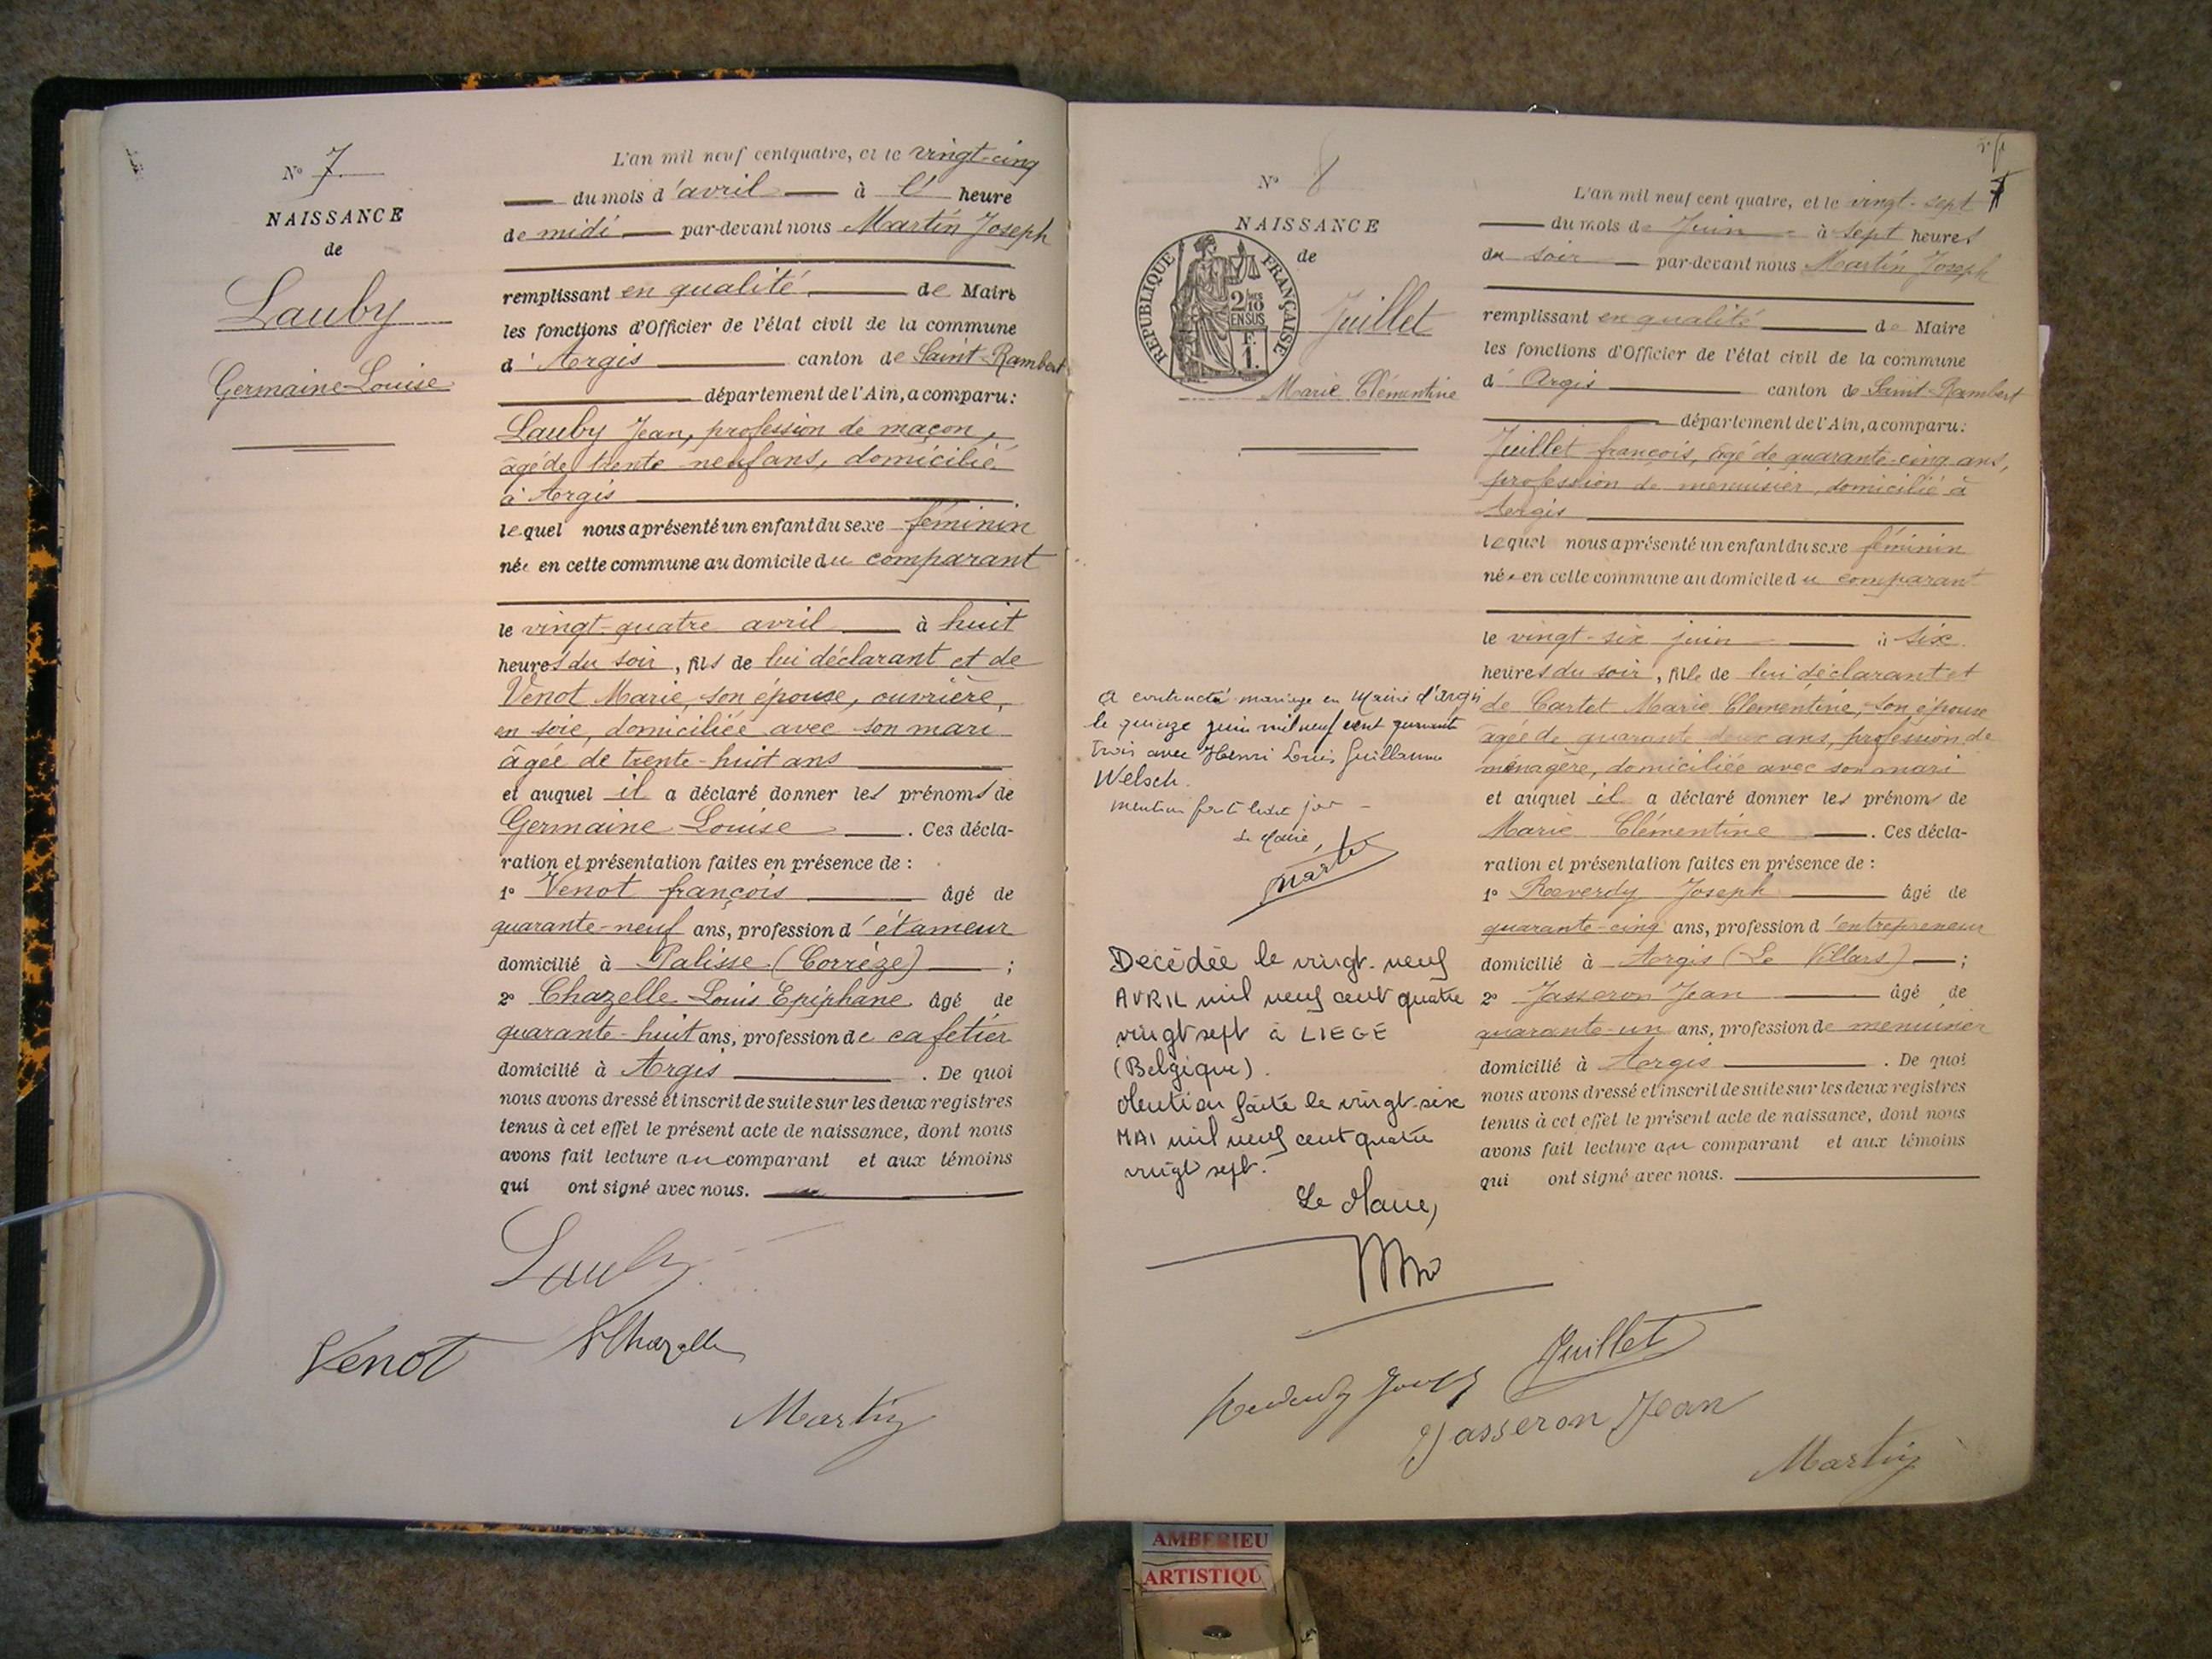 N° 7
NAISSANCE
de
Lauby
Germaine Louise
L'an mil neuf cent quatre, et le vingt-cinq
du mois d'avril à l' heure
de midi par-devant nous Martin Joseph
remplissant en qualité de Maire
les fonctions d'Officier de l'état civil de la commune
d'Argis canton de Saint-Rambert
département de l'Ain, a comparu:
Lauby Jean, profession de maçon,
âgé de trente neuf ans, domicilié
à Argis
lequel nous a présenté un enfant du sexe féminin
née en cette commune au domicile du comparant
le vingt-quatre avril à huit
heures du soir, fils de lui déclarant et de
Venot Marie, son épouse, ouvrière,
en soie, domiciliée avec son mari
âgée de trente-huit ans
et auquel il a déclaré donner les prénoms de
Germaine Louise. Ces décla-
ration et présentation faites en présence de :
1° Venot françois âgé de
quarante-neuf ans, profession d'étameur
domicilié à Palisse (Corrèze) ;
2° Chazelle Louis Epiphane âgé de
quarante-huit ans, profession de cafetier
domicilié à Argis. De quoi
nous avons dressé et inscrit de suite sur les deux registres
tenus à cet effet le présent acte de naissance, dont nous
avons fait lecture au comparant et aux témoins
qui ont signé avec nous.
Lauby
Venot Chazelle
Martin
N° 8
NAISSANCE
de
REPUBLIQUE FRANÇAISE
2/10 EN SUS
1 F.
Juillet
Marie Clémentine
A contracté mariage en Mairie d'Argis
le quinze juin mil neuf cent quarante
trois avec Henri Louis Guillaume
Welsch.
mention faite
Le Maire,
Décédée le vingt-neuf
AVRIL mil neuf cent quatre
vingt sept à LIEGE
(Belgique).
Mention faite le vingt-six
MAI mil neuf cent quatre
vingt sept.
Le Maire,
L'an mil neuf cent quatre, et le vingt-sept
du mois de Juin à sept heures
du soir par-devant nous Martin Joseph
remplissant en qualité de Maire
les fonctions d'Officier de l'état civil de la commune
d'Argis canton de Saint-Rambert
département de l'Ain, a comparu:
Juillet françois, âgé de quarante-cinq ans,
profession de menuisier, domicilié à
Argis
lequel nous a présenté un enfant du sexe féminin
née en cette commune au domicile du comparant
le vingt-six juin à six
heures du soir, fille de lui déclarant et
de Cartet Marie Clémentine, son épouse
âgée de quarante deux ans, profession de
ménagère, domiciliée avec son mari
et auquel il a déclaré donner les prénoms de
Marie Clémentine. Ces décla-
ration et présentation faites en présence de :
1° Reverdy Joseph âgé de
quarante-cinq ans, profession d'entrepreneur
domicilié à Argis (Le Villars) ;
2° Jasseron Jean âgé de
quarante-un ans, profession de menuisier
domicilié à Argis. De quoi
nous avons dressé et inscrit de suite sur les deux registres
tenus à cet effet le présent acte de naissance, dont nous
avons fait lecture au comparant et aux témoins
qui ont signé avec nous.
Juillet
Jasseron Jean
Martin
AMBERIEU
ARTISTIQU